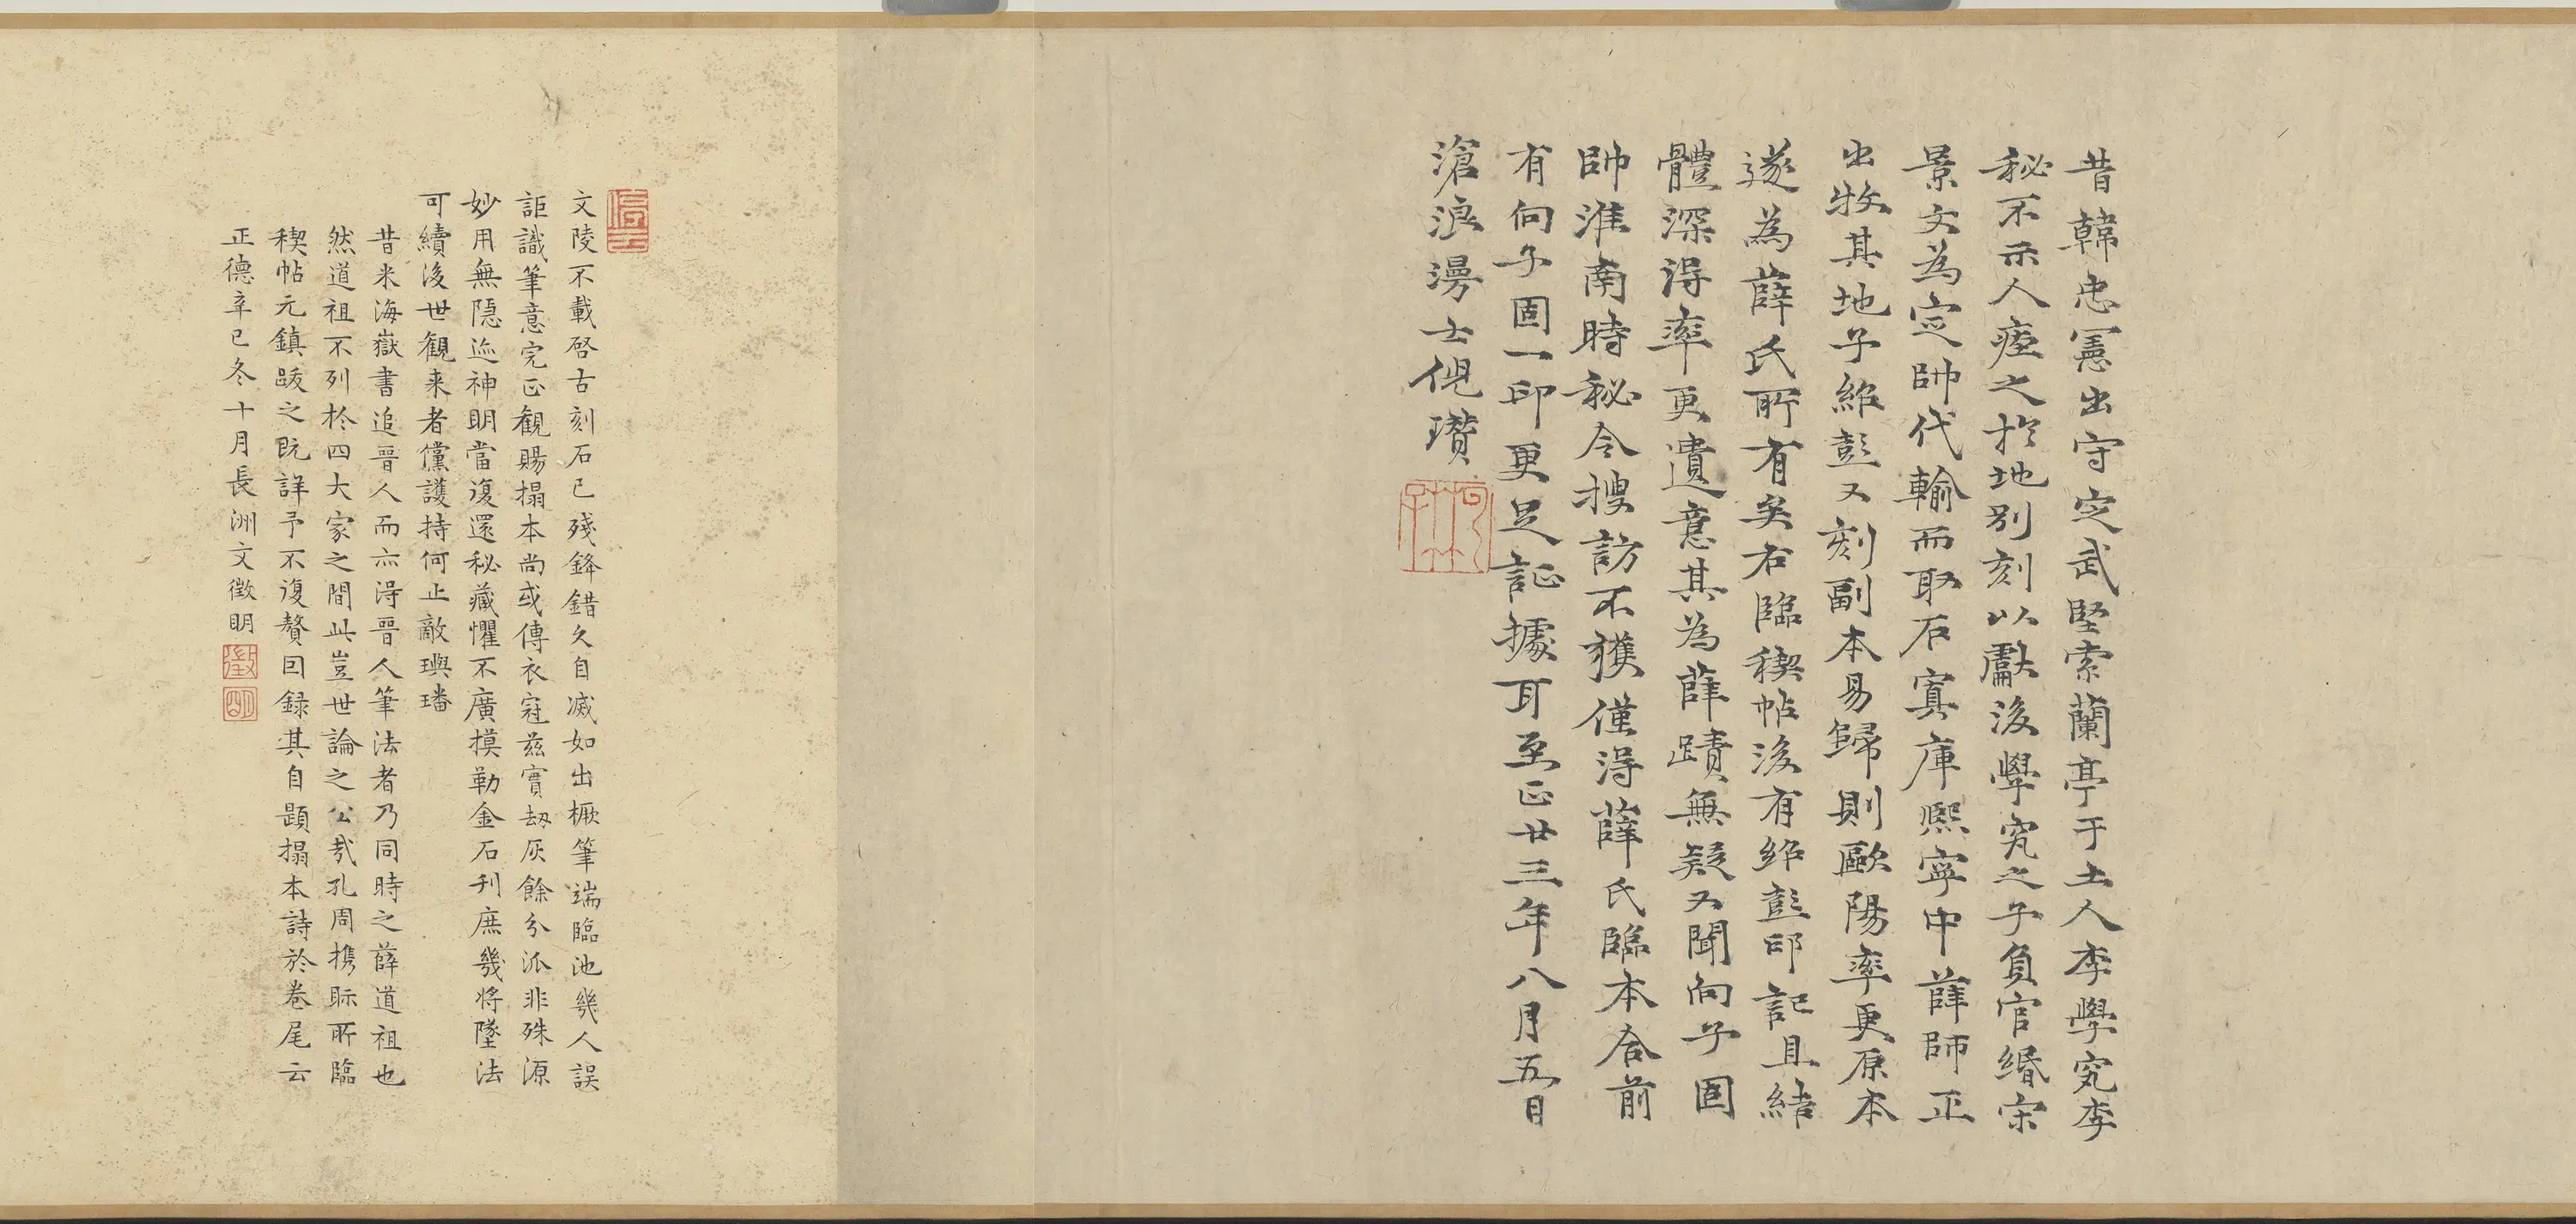 昔韓忠憲出守定武堅索蘭亭于土人李學究李
秘不示人瘞之於地別刻以獻後學究之子負官緡宋
景文為定帥代輸而取石寘庫熙寧中薛師正
出牧其地子紹彭又刻副本易歸則歐陽率更原本
遂為薛氏所有矣右臨稧帖後有紹彭印記且結
體深得率更遺意其為薛蹟無疑又聞向子固
帥淮南時秘令搜訪不獲僅得薛氏臨本合前
有向子固一印更足証據耳至正廿三年八月五日
滄浪漫士倪瓚
停雲
文陵不載啓古刻石已殘鋒錯久自滅如出橛筆端臨池幾人誤
詎識筆意完正觀賜搨本尚或傳衣冠茲實劫灰餘分派非殊源
妙用無隱迹神明當復還秘藏懼不廣摸勒金石刊庶幾將墜法
可續後世觀来者儻護持何止敵璵璠
昔米海嶽書追晉人而亦得晉人筆法者乃同時之薛道祖也
然道祖不列於四大家之間此豈世論之公哉孔周携眎所臨
稧帖元鎮跋之既詳予不復贅因録其自題搨本詩於卷尾云
正德辛巳冬十月長洲文徵明
徵
明